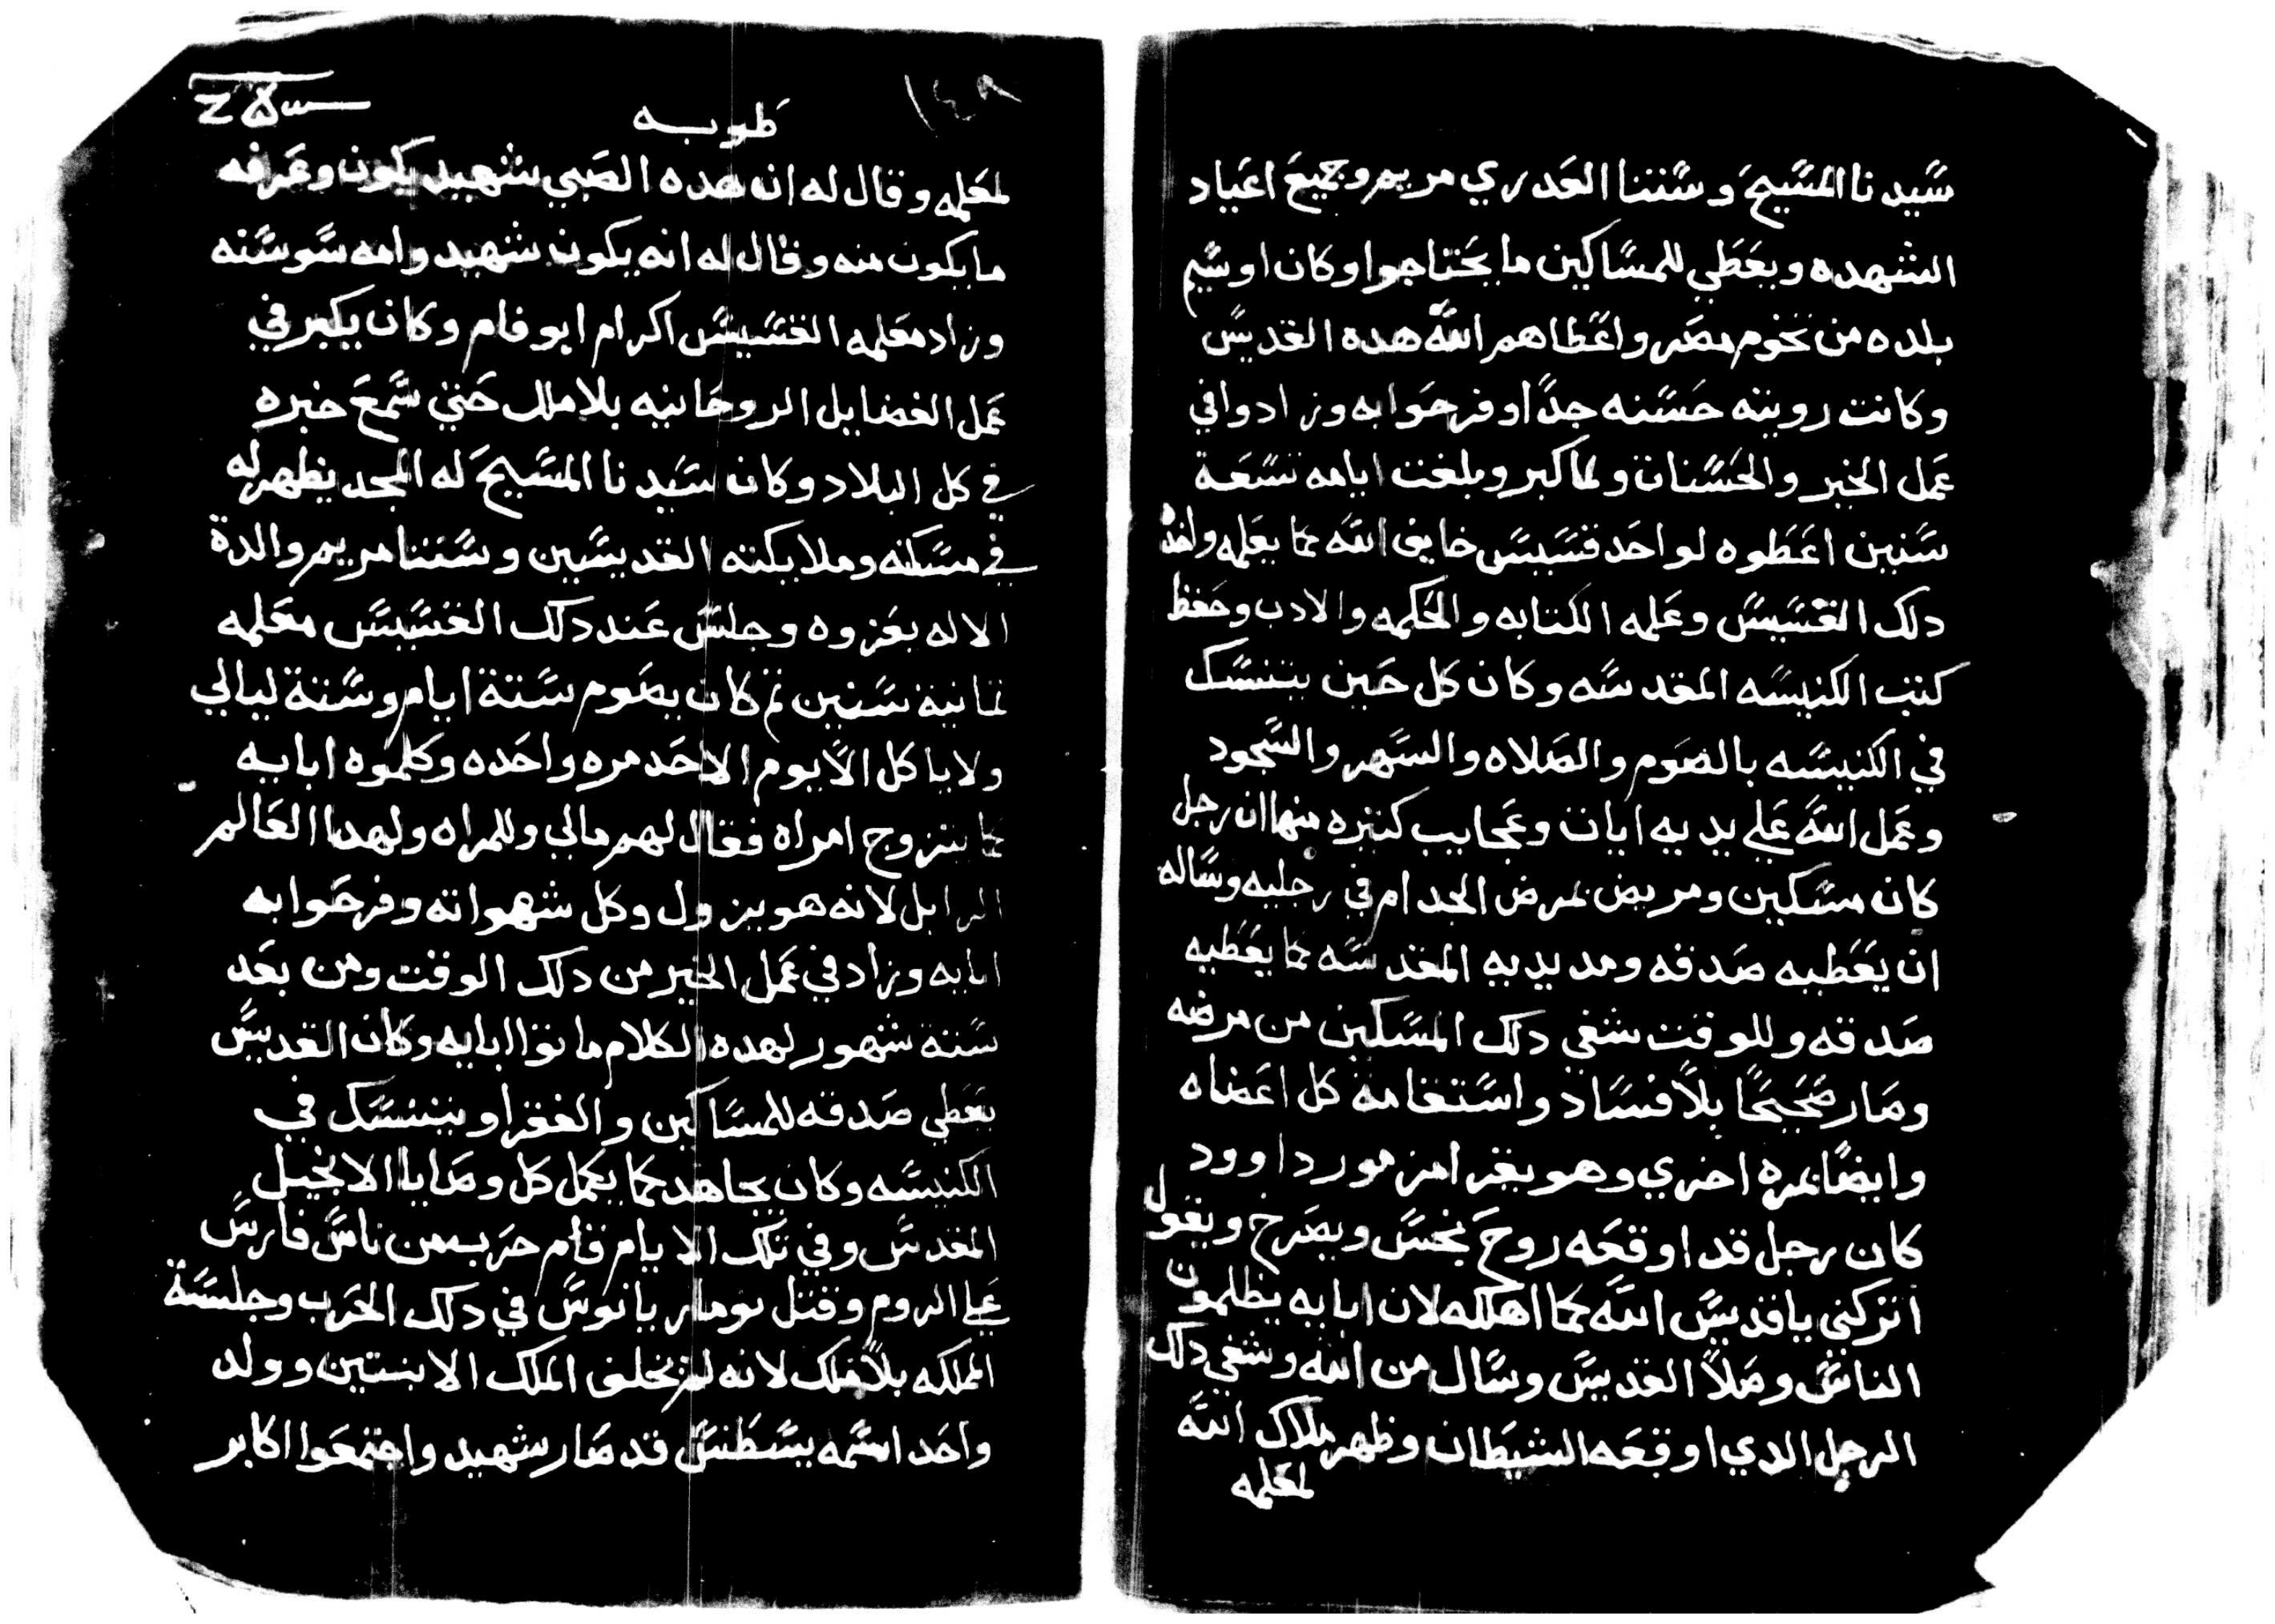 سيدنا المسيح وستنا العدري مريم وجميع اعياد
الشهده ويعطي للمساكين ما يحتاجوا وكان اوسيم
بلده من تخوم مصر واعطاهم الله هده القديس
وكانت رويته حسنه جدًا وفرحوا به وزادوا في
عمل الخير والحسنات ولما كبر وبلغت ايامه تسعة
سنين اعطوه لواحد قسيس خايف الله كما يعلمه واخد
دلك القسيس وعلمه الكتابه والحكمه والادب وحفظ
كتب الكنيسه المقدسه وكان كل حين يتنسك
في الكنيسه بالصوم والصلاه والسهر والسجود
وعمل الله علي يديه ايات وعجايب كتيره منها ان رجل
كان مسكين ومريض بمرض الجدام في رجليه وساله
ان يعطيه صدقه ومد يديه المقدسه كما يعطيه
صدقه وللوقت شفي دلك المسكين من مرضه
وصار صحيحًا بلا فساد واستقامة كل اعضاه
وايضًا بمره اخري وهو يقرا مزمور داوود
كان رجل قد اوقعه روح نجس ويصرخ ويقول
اتركني يا قديس الله كما اهلكه لان ابايه يظلمون
الناس وصلا القديس وسال من الله وشفي دلك
الرجل الدي اوقعه الشيطان وظهر ملاك الله
لمعلمه
١٤٨
طوبه
لمعلمه وقال له ان هده الصبي شهيد يكون وعرفه
ما يكون منه وقال له انه يكون شهيد وامه سوسنه
وزاد معلمه القسيس اكرام ابو فام وكان يكبر في
عمل الفضايل الروحانيه بلا ملل حتي سمع خبره
في كل البلاد وكان سيدنا المسيح له المجد يظهر له
في مسكنه وملايكته القديسين وستنا مريم والدة
الاله يعزوه وجلس عند دلك القسيس معلمه
تمانية سنين تم كان يصوم ستة ايام وستة ليالي
ولا ياكل الا يوم الاحد مره واحده وكلموه ابايه
كما يتزوج امراه فقال لهم مالي وللمراه ولهدا العالم
الزايل لانه هو يزول وكل شهواته وفرحوا به
ابايه وزاد في عمل الخير من دلك الوقت ومن بعد
ستة شهور لهده الكلام ماتوا ابايه وكان القديس
يعطي صدقه للمساكين والفقرا ويتنسك في
الكنيسه وكان يجاهد كما يكمل كل وصايا الانجيل
المقدس وفي تلك الايام قام حرب من ناس فارس
علي الروم وقتل نوماريانوس في دلك الحرب وجلسة
المملكه بلا ملك لانه لم يخلف الملك الا بنتين وولد
واحد اسمه يسطس قد صار شهيد واجتمعوا اكابر